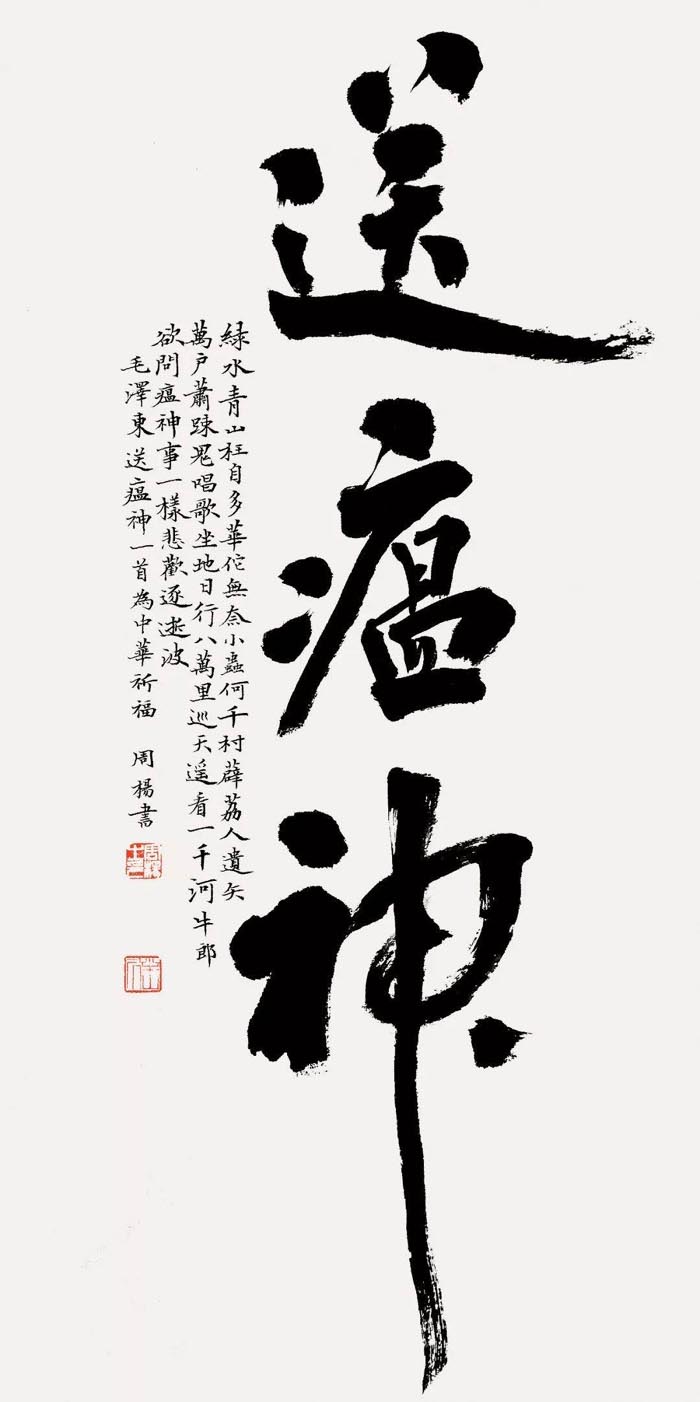 送瘟神
緑水青山枉自多華佗無奈小蟲何千村薜荔人遺矢
萬户蕭踈鬼唱歌坐地日行八萬里巡天遥看一千河牛郎
欲問瘟神事一樣悲歡逐逝波
毛澤東送瘟神一首為中華祈福 周楊書